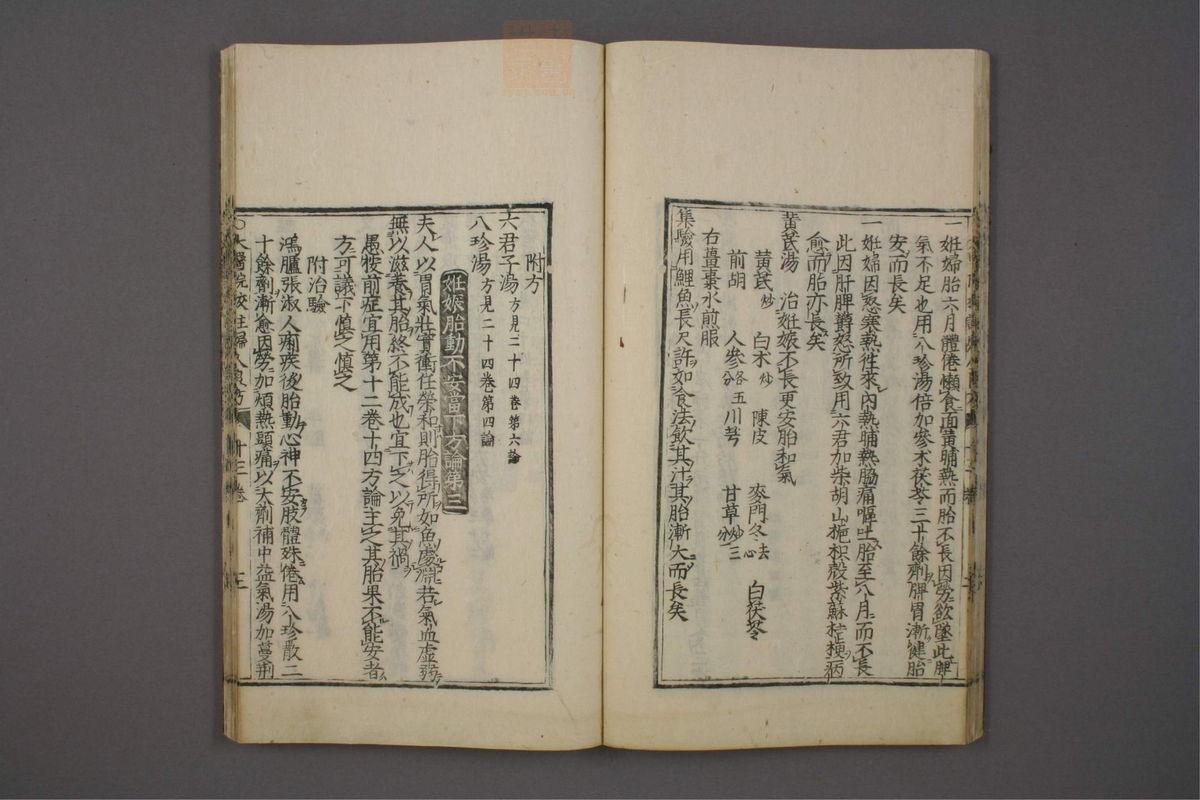 一妊婦胎六月體倦懶食面黃晡熱而胎不長因勞欲墜此脾
氣不足也用八珍湯倍加參术茯苓三十餘劑脾胃漸健胎
安而長矣
一妊婦因怒寒熱往來內熱晡熱脇痛嘔吐胎至八月而不長
此因肝脾欝怒所致用六君加柴胡山梔枳殼紫蘇桔梗病
愈而胎亦長矣
黃芪湯 治妊娠不長更安胎和氣
黃芪炒 白术炒 陳皮 麥門冬去心 白茯苓
前胡 人參各五分 川芎 甘草炒三分
右薑棗水煎服
集驗用鯉魚長尺許如食法飲其汁其胎漸大而長矣
附方
六君子湯方見二十四卷第六論
八珍湯方見二十四卷第四論
妊娠胎動不安當下方論第三
夫人以胃氣壯實衝任榮和則胎得所如魚處淵若氣血虛弱
無以滋養其胎終不能成也宜下之以免其禍
愚按前症宜用第十二卷十四方論主之其胎果不能安者
方可議下慎之慎之
附治驗
鴻臚張淑人痢疾後胎動心神不安肢體殊倦用八珍散二
十餘劑漸愈因勞加煩熱頭痛以大劑補中益氣湯加蔓荊
太醫院校註婦人良方 十三卷 三